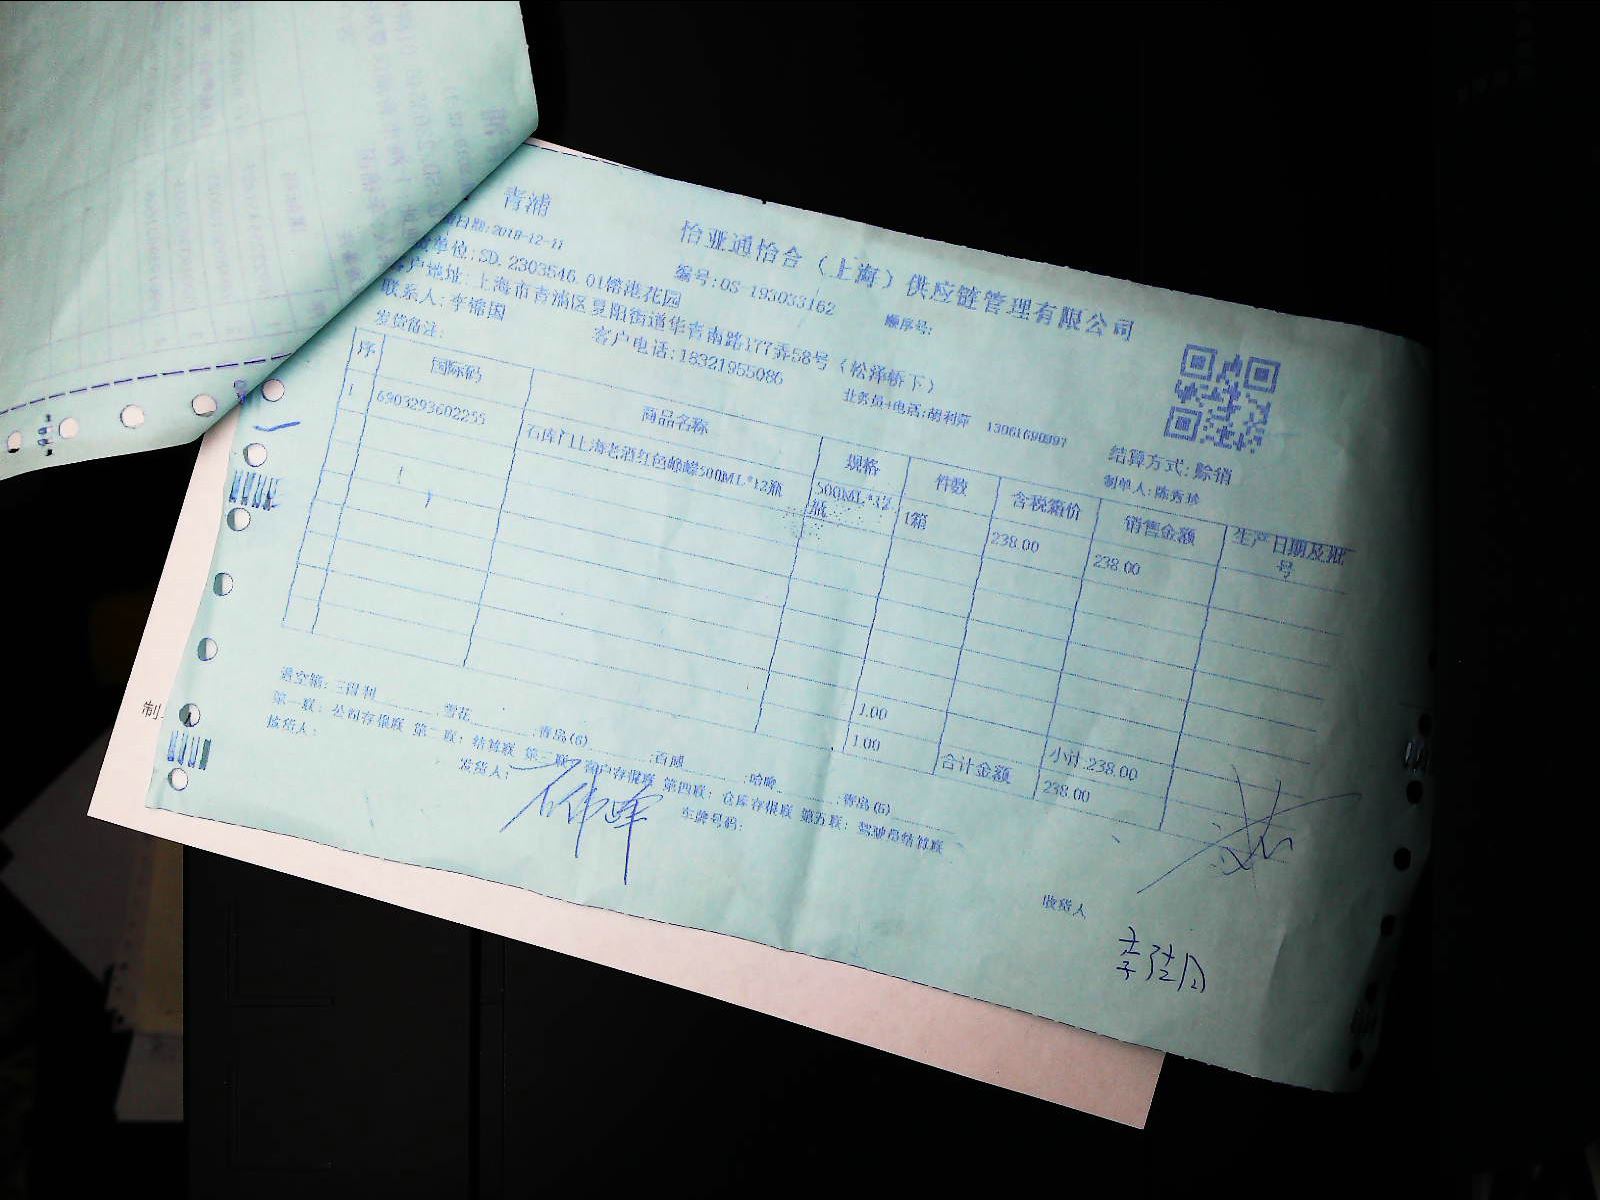 青浦
怡亚通怡合（上海）供应链管理有限公司
日期:2018-12-11
编号:OS-193033162
顺序号:
单位:SD.2303546.01 港花园
客户地址:上海市青浦区夏阳街道华青南路177弄58号（松泽桥下）
联系人:李 国
客户电话:18321955086
业务员+电话:胡利萍 13061690997
结算方式:赊销
发货备注:
制单人:陈秀珍
序 国际码 商品名称 规格 件数 含税箱价 销售金额 生产日期及批号
1 6903293602255 石库门上海老酒红色 500ML*12瓶 500ML*12瓶 1箱 238.00 238.00
1.00 小计:238.00
1.00 合计金额 238.00
退空箱:三得利 雪花 :青岛(6) :百威 :哈啤 :青岛(5)
第一联：公司存根联 第二联：结算联 第三联：客户存根联 第四联：仓库存根联 第五联：驾驶员结算联
核货人：
发货人：
车牌号码：
收货人
制